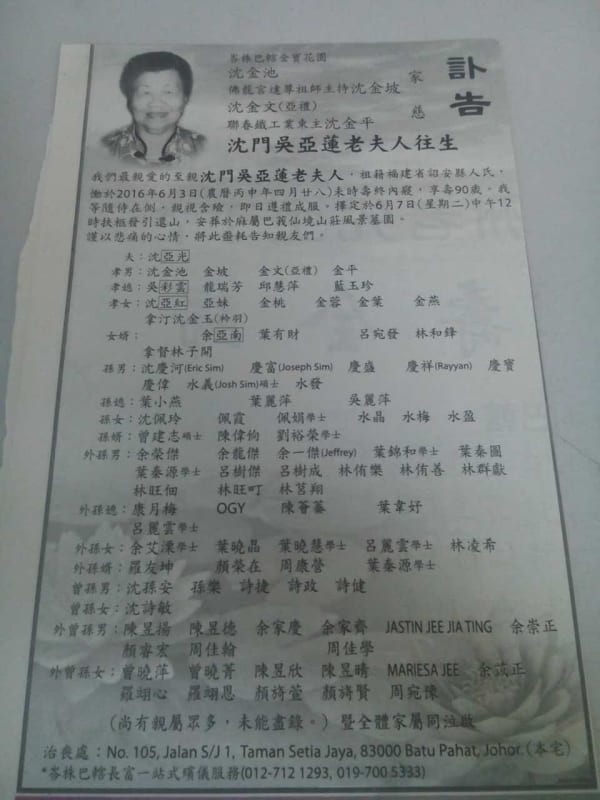 訃告
家慈
峇株巴轄金寶花園
沈金池
佛龍宮達尊祖師主持沈金坡
沈金文(亞禮)
聯春鐵工業東主沈金平
沈門吳亞蓮老夫人往生
我們最親愛的至親沈門吳亞蓮老夫人，祖籍福建省詔安縣人氏，
慟於2016年6月3日(農曆丙申年四月廿八)未時壽終內寢，享壽90歲。我
等隨侍在側，親視含殮，即日遵禮成服。擇定於6月7日(星期二)中午12
時扶柩發引還山，安葬於麻屬巴莪仙境山莊風景墓園。
謹以悲痛的心情，將此噩耗告知親友們。
夫：沈亞光
孝男：沈金池 金坡 金文(亞禮) 金平
孝媳：吳彩雲 龍瑞芳 邱慧萍 藍玉珍
孝女：沈亞紅 亞妹 金桃 金蓉 金葉 金燕
拿汀沈金玉(袊羽)
女婿： 余亞南 葉有財 呂宛發 林和鋒
拿督林子閞
孫男：沈慶河(Eric Sim) 慶富(Joseph Sim) 慶盛 慶祥(Rayyan) 慶寶
慶偉 水義(Josh Sim)碩士 水發
孫媳：葉小燕 葉麗萍 吳麗萍
孫女：沈佩玲 佩霞 佩娟學士 水晶 水梅 水盈
孫婿：曾建志碩士 陳偉徇 劉裕榮學士
外孫男：余榮傑 余龍傑 余一傑(Jeffrey) 葉錦和學士 葉泰圖
葉泰源學士 呂樹傑 呂樹成 林侑樂 林侑善 林群獻
林旺佃 林旺町 林茗翔
外孫媳：康月梅 OGY 陳蓄蓁 葉韋妤
呂麗雲學士
外孫女：余艾溧學士 葉曉晶 葉曉慧學士 呂麗雲學士 林凌希
外孫婿：羅友坤 顏榮在 周康營 葉泰源學士
曾孫男：沈孫安 孫樂 詩捷 詩政 詩健
曾孫女：沈詩敏
外曾孫男：陳昱揚 陳昱德 余家慶 余家齊 JASTIN JEE JIA TING 余崇正
顏睿宏 周佳翰 周佳學
外曾孫女：曾曉萍 曾曉菁 陳昱欣 陳昱晴 MARIESA JEE 余苡正
羅翊心 羅翊恩 顏旖萱 顏旖賢 周宛愫
(尚有親屬眾多，未能盡錄。)暨全體家屬同泣啟
治喪處：No. 105, Jalan S/J 1, Taman Setia Jaya, 83000 Batu Pahat, Johor.(本宅)
*峇株巴轄長富一站式殯儀服務(012-712 1293, 019-700 5333)